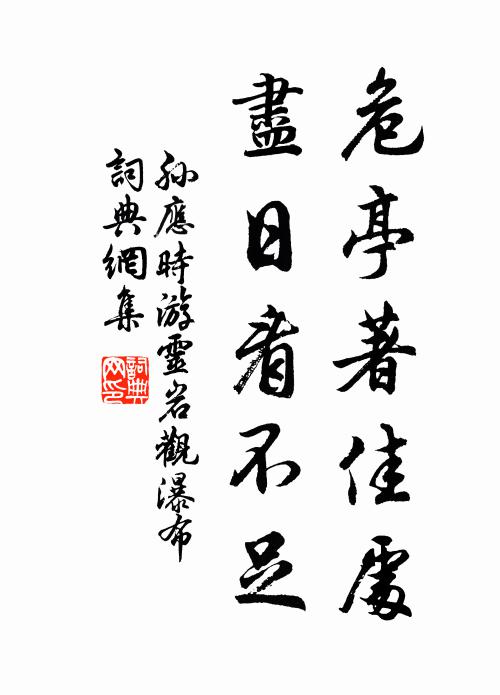 危亭著佳處
盡日看不足
孫應時游靈岩觀瀑布
詞典網集
詞典網印